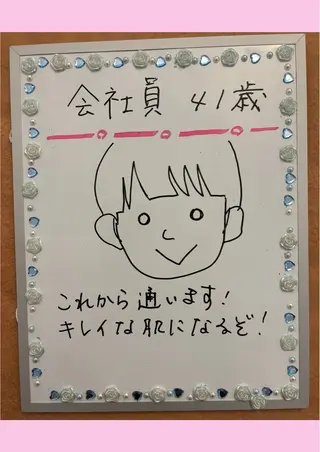 会社員 41歳
これから通います!
キレイな肌になるぞ!